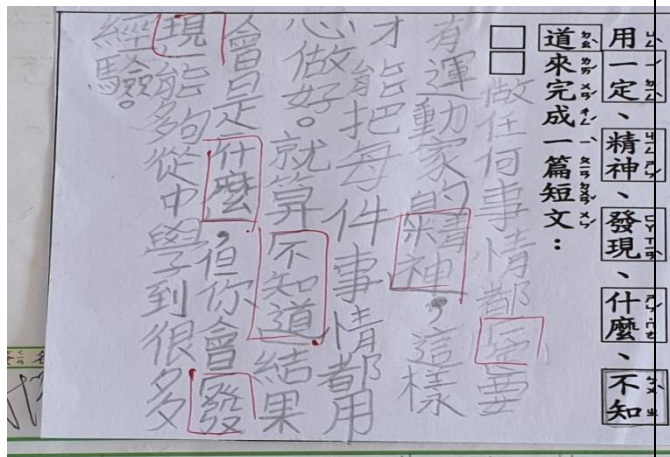 用一定、精神、發現、什麼、不知
道來完成一篇短文：
做任何事情都一定要
有運動家的精神，這樣
才能把每件事情都用
心做好。就算不知道結果
會是什麼，但你會發
現能夠從中學到很多
經驗。